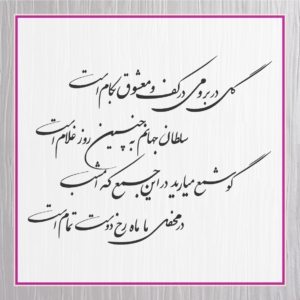 گل در بر و می در کف و معشوق بکام است
سلطان جهانم به چنین روز غلام است
گو شمع میارید در این جمع که امشب
در محفل ما ماه رخ دوست تمام است